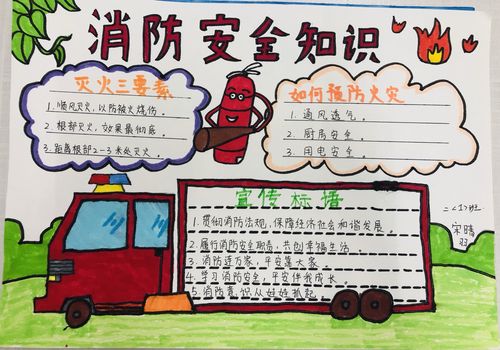 消防安全知识
灭火三要素
1. 顺风灭火，以防被火烧伤。
2. 根部灭火，效果最彻底。
3. 距离根部2-3米处灭火。
如何预防火灾
1. 通风透气。
2. 厨房安全。
3. 用电安全。
宣传标语
1. 贯彻消防法规，保障经济社会和谐发展。
2. 履行消防安全职责，共创幸福生活
3. 消防连万家，平安靠大家
4. 学习消防安全，平安伴我成长
5. 消防意识从娃娃抓起
二<1>班
宋晴